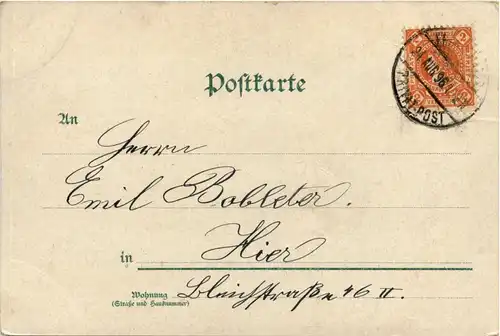 Postkarte
An
Herrn
Emil Bobleter.
in Hier
Wohnung Bleichstraße 46 II.
(Straße und Hausnummer)
AUG 96
POST